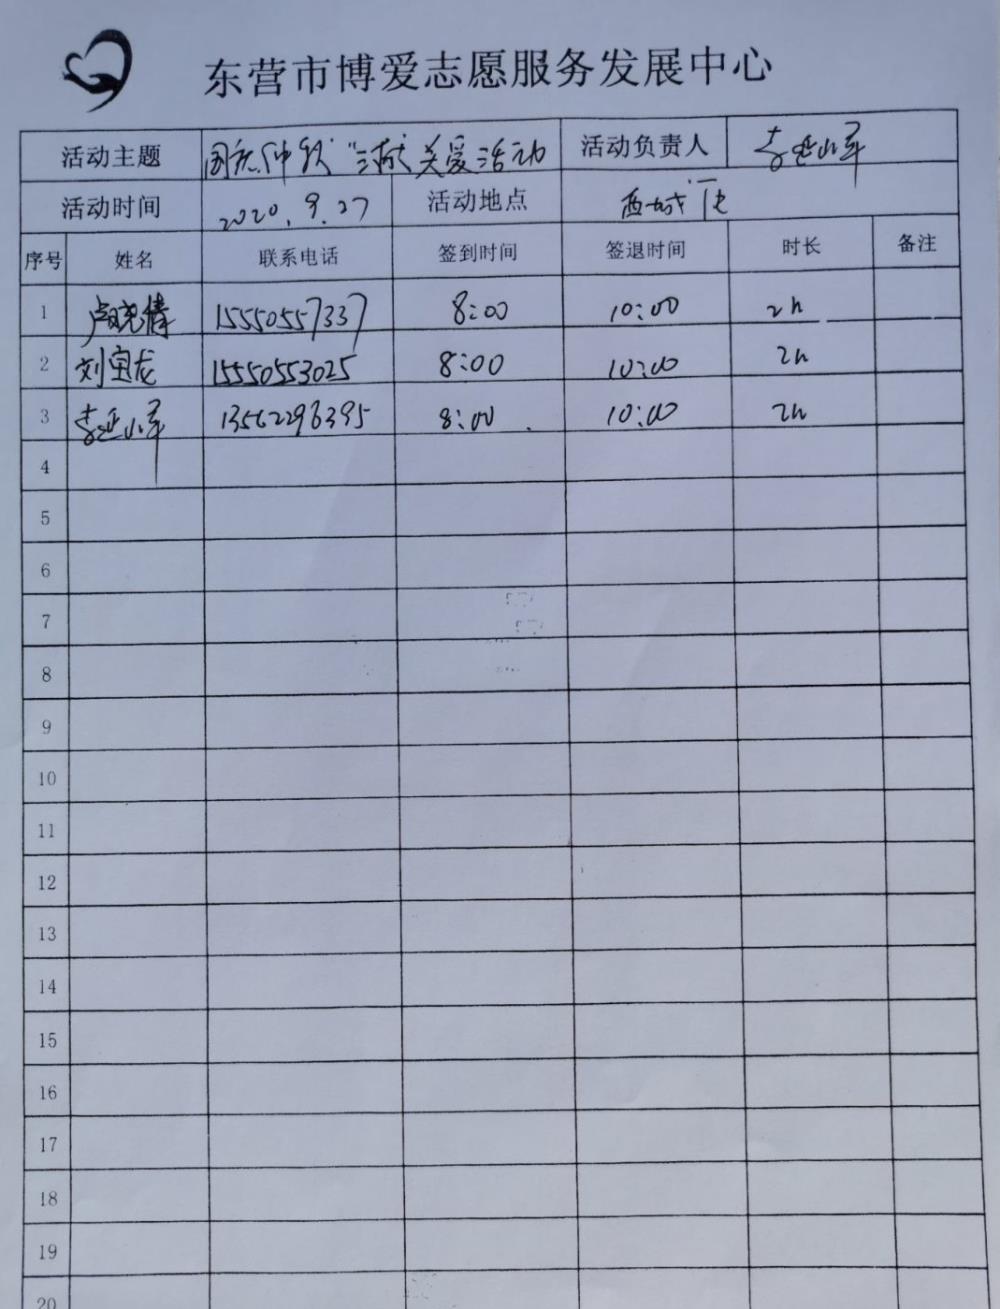 东营市博爱志愿服务发展中心
活动主题 国庆仲秋"三献"关爱活动 活动负责人
活动时间 2020.9.27 活动地点 西城
序号 姓名 联系电话 签到时间 签退时间 时长 备注
1 卢晓倩 15550557337 8:00 10:00 2h
2 刘宝龙 15550553025 8:00 10:00 2h
3 13562296395 8:00 10:00 2h
4
5
6
7
8
9
10
11
12
13
14
15
16
17
18
19
20